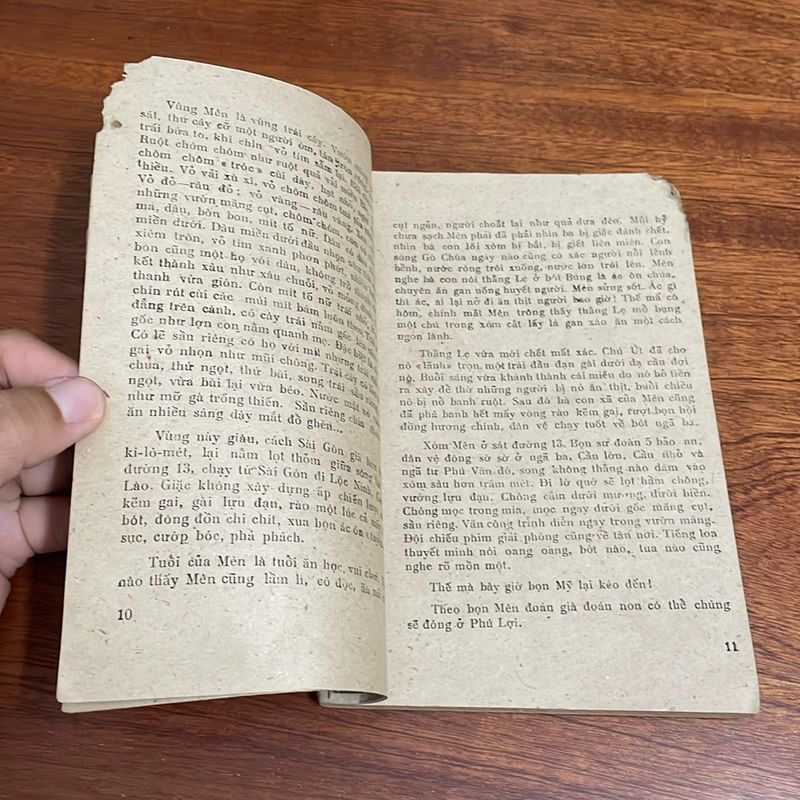 Vùng Mên là vùng trái cây. Vườn
sát, thứ cây cỡ một người ôm, tán
trái bứa to, khi chín vỏ tím sẫm lại.
Ruột chôm chôm như ruột quả vải miền
chôm chôm «tróc» cùi dày, hạt
thiền. Vỏ vải xù xì, vỏ chôm chôm tua
Vỏ đỏ—râu đỏ; vỏ vàng—râu vàng.
những vườn măng cụt, chôm chôm, còn
ma, dâu, bòn bon, mít tố nữ. Dâu có
miền dưới. Dâu miền dưới đầu nhọn như
xiêm tròn, vỏ tím xanh phơn phớt,
bon cũng một họ với dâu, không trổ
kết thành xâu như xâu chuỗi, vỏ mỏng
thanh vừa giòn. Còn mít tố nữ trái
chín rút cùi các múi mít bám luôn theo
đẳng trên cành, có cây trái nằm gốc
gốc như lợn con nằm quanh mẹ. Đặc biệt
Có lẽ sầu riêng có họ với mít nhưng trái
gai vỏ nhọn như mũi chông. Trái cây có
chua, thứ ngọt, thứ bùi, song trái sầu riêng
ngọt, vừa bùi lại vừa béo. Nước mật nó
như mỡ gà trống thiến. Sầu riêng chín
ăn nhiều sáng dậy mắt đổ ghèn...
Vùng này giàu, cách Sài Gòn già
ki-lô-mét, lại nằm lọt thỏm giữa sông
đường 13, chạy từ Sài Gòn đi Lộc Ninh,
Lào. Giặc không xây dựng ấp chiến lược
kẽm gai, gài lựu đạn, rào một lúc cả
bót, đóng đồn chi chít, xua bọn ác ôn
sục, cướp bóc, phá phách.
Tuổi của Mên là tuổi ăn học, vui chơi,
nào thấy Mên cũng lầm lì, cô độc, ăn
10
cụt ngắn, người choắt lại như quả dưa đèo. Mũi hỷ
chưa sạch Mên phải đã phải nhìn ba bị giặc đánh chết,
nhìn bà con lối xóm bị bắt, bị giết liên miên. Con
sông Gò Chùa ngày nào cũng có xác người nổi lềnh
bềnh, nước ròng trôi xuống, nước lớn trôi lên. Mên
nghe bà con nói thằng Lẹ ở bót Búng là ác ôn chúa,
chuyên ăn gan uống huyết người. Mên sửng sốt. Ác gì
thì ác, ai lại nỡ đi ăn thịt người bao giờ! Thế mà có
hôm, chính mắt Mên trông thấy thằng Lẹ mổ bụng
một chú trong xóm cắt lấy lá gan xào ăn một cách
ngon lành.
Thằng Lẹ vừa mới chết mất xác. Chú Út đã cho
nó «lãnh» trọn một trái đầu đạn gài dưới dạ cầu đợi
nó. Buổi sáng vừa khánh thành cái miếu do nó bỏ tiền
ra xây để thờ những người bị nó ăn thịt, buổi chiều
nó bị nổ banh ruột. Sau đó bà con xã của Mên cũng
đã phá banh hết mấy vòng rào kẽm gai, rượt bọn hội
đồng hương chính, dân vệ chạy tuốt về bót ngã ba.
Xóm Mên ở sát đường 13. Bọn sư đoàn 5 bảo an,
dân vệ đóng sờ sờ ở ngã ba, Cầu lớn, Cầu nhỏ và
ngã tư Phú Văn đó, song không thằng nào dám vào
xóm sâu hơn trăm mét. Đi lớ quớ sẽ lọt hầm chông,
vướng lựu đạn. Chông cắm dưới mương, dưới biền.
Chông mọc trong mía, mọc ngay dưới gốc măng cụt,
sầu riêng. Văn công trình diễn ngay trong vườn măng.
Đội chiếu phim giải phóng cũng về tận nơi. Tiếng loa
thuyết minh nói oang oang, bót nào, tua nào cũng
nghe rõ mồn một.
Thế mà bây giờ bọn Mỹ lại kéo đến!
Theo bọn Mên đoán già đoán non có thể chúng
sẽ đóng ở Phú Lợi.
11